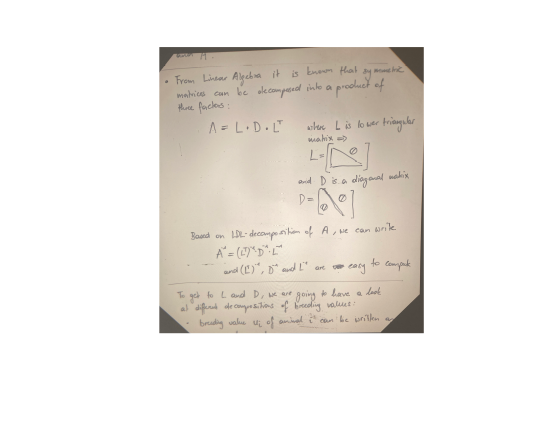 • From Linear Algebra it is known that symmetric
matrices can be decomposed into a product of
three factors:
A = L · D · Lᵀ where L is lower triangular
matrix =>
L = [ 0 ]
and D is a diagonal matrix
D = [ 0 0 ]
Based on LDL-decomposition of A, we can write
A⁻¹ = (Lᵀ)⁻¹ · D⁻¹ · L⁻¹
and (Lᵀ)⁻¹, D⁻¹ and L⁻¹ are easy to compute
To get to L and D, we are going to have a look
at different decompositions of breeding values:
• breeding value uᵢ of animal i can be written as